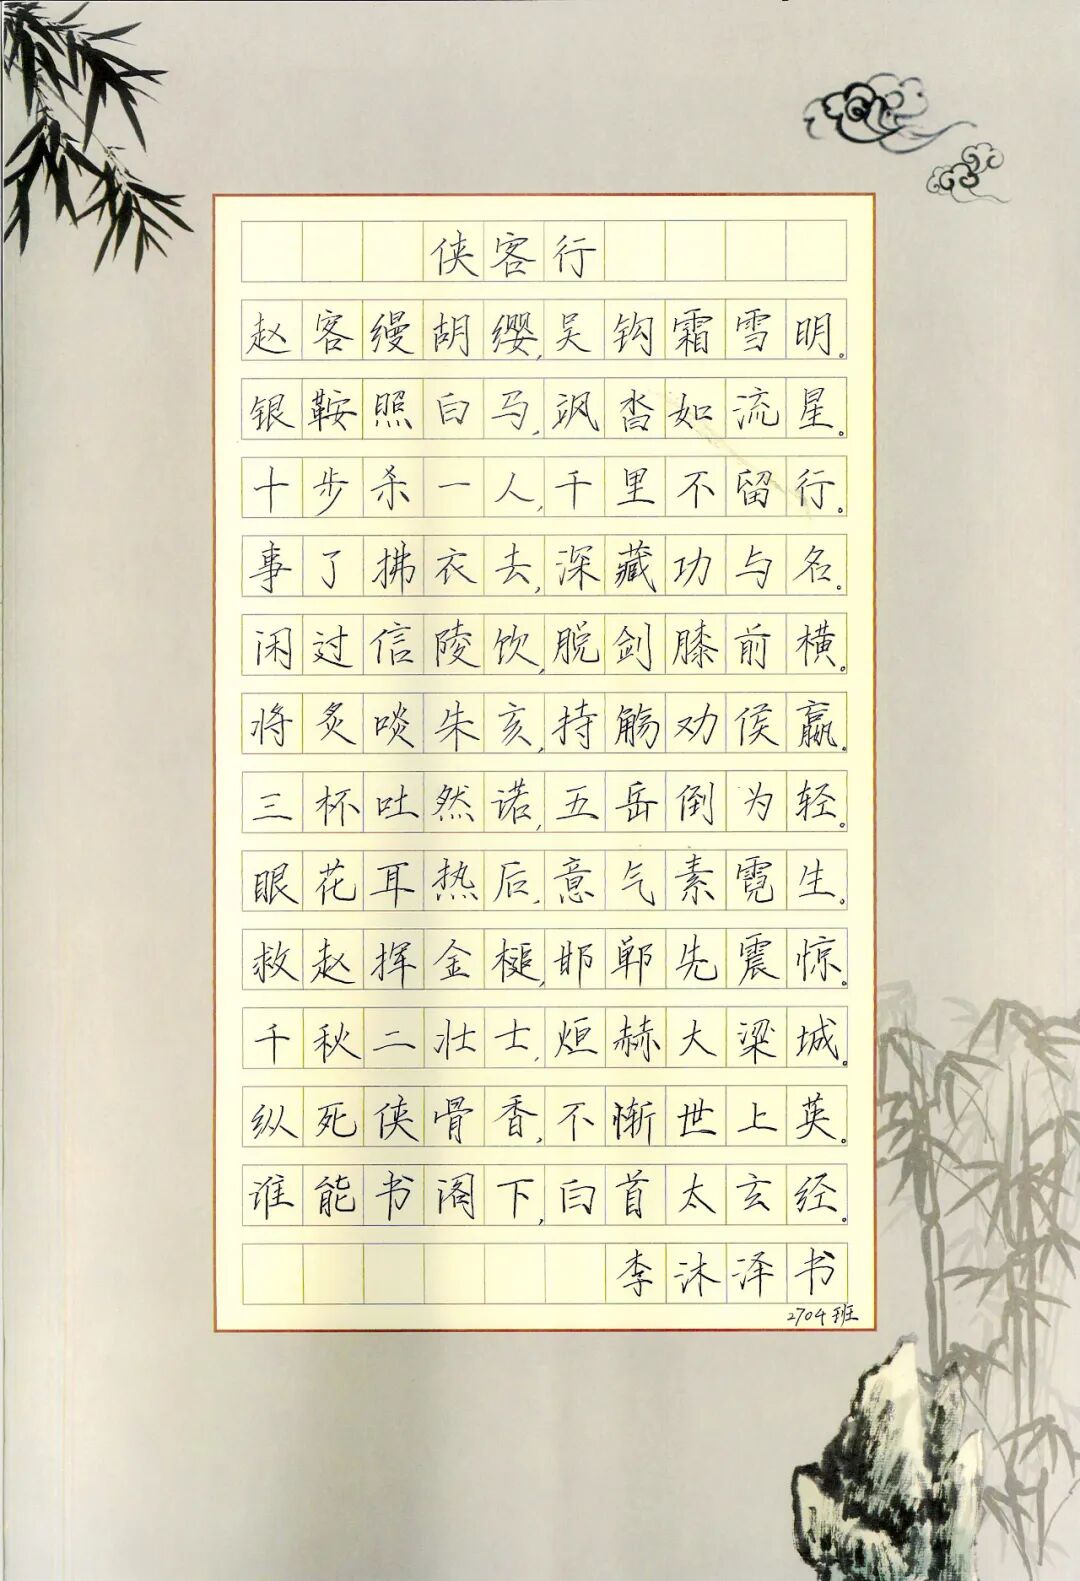 侠客行
赵客缦胡缨,吴钩霜雪明。
银鞍照白马,飒沓如流星。
十步杀一人,千里不留行。
事了拂衣去,深藏功与名。
闲过信陵饮,脱剑膝前横。
将炙啖朱亥,持觞劝侯嬴。
三杯吐然诺,五岳倒为轻。
眼花耳热后,意气素霓生。
救赵挥金槌,邯郸先震惊。
千秋二壮士,烜赫大梁城。
纵死侠骨香,不惭世上英。
谁能书阁下,白首太玄经。
李沐泽书
2704班